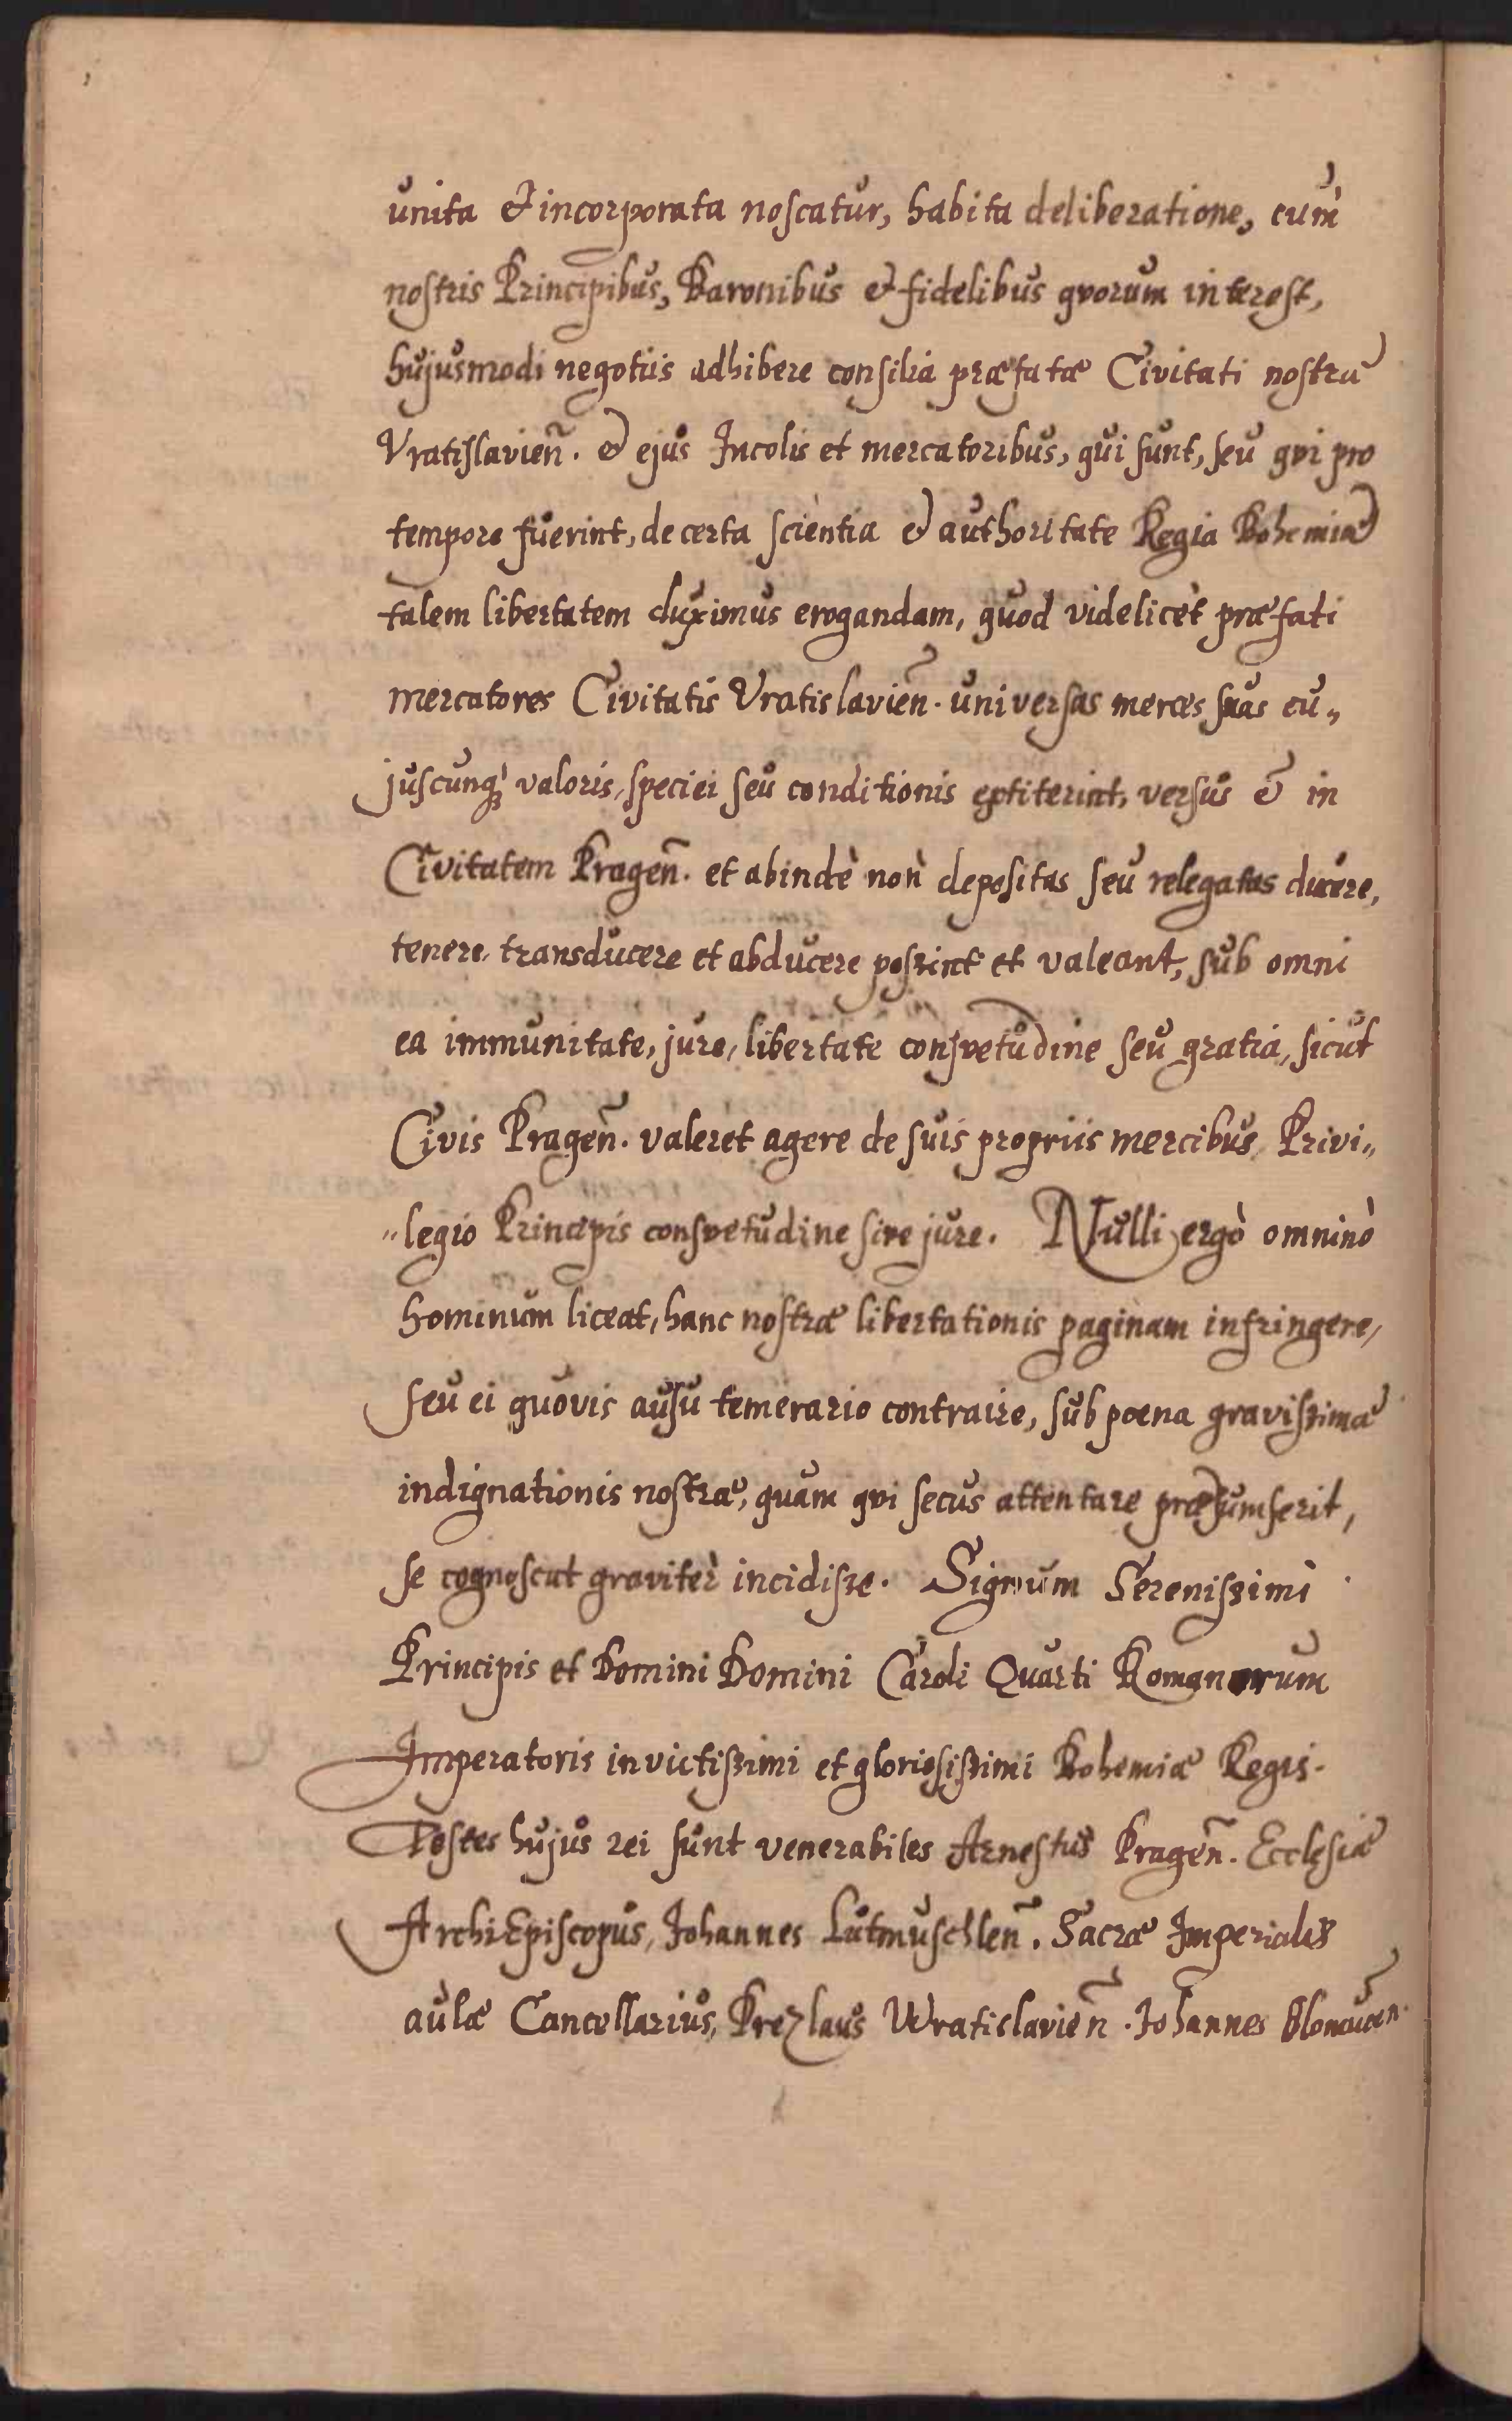 unita & incorporata noscatur, habita deliberatione, cum
nostris Principibus, Baronibus & fidelibus qvorum interest,
hujusmodi negotiis adhibere consilia præfatæ Civitati nostræ
Vratislavien̄. & ejus Incolis et mercatoribus, qui sunt, seu qvi pro
tempore fuerint, de certa scientia & authoritate Regia Bohemiæ
talem libertatem duximus erogandam, quod videlicèt præfati
mercatores Civitatis Vratislavien̄. universas merces suas cu„
juscunq̃ valoris, speciei seu conditionis extiterint, versus & in
Civitatem Pragen̄. et abindè non depositas seu relegatas ducere,
tenere, transducere et abducere possint et valeant, sub omni
ea immunitate, jure, libertate consvetudine seu gratia, sicut
Civis Pragen̄. valeret agere de suis propriis mercibus Privi„
„legio Principis consvetudine sive jure. Nulli ergò omninò
hominum liceat, hanc nostræ libertationis paginam infringere,
seu ei quovis ausu temerario contraire, sub poena gravissimæ
indignationis nostræ, quam qvi secus attentare præsumserit,
se cognoscat graviter incidisse. Signum Serenissimi
Principis et Domini Domini Caroli Quarti Romanorum
Imperatoris invictissimi et gloriosissimi Bohemiæ Regis.
Testes hujus rei sunt venerabiles Arnestus Pragen̄. Ecclesiæ
ArchiEpiscopus, Johannes Lutmuschlen̄. Sacræ Imperialis
aulæ Cancellarius, Prezlaus Wratislavien̄. Johannes Olomucen̄.